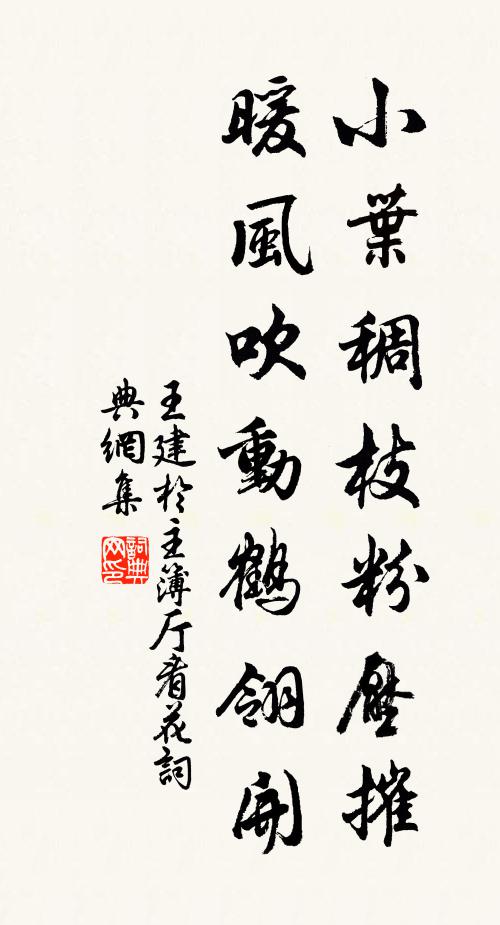 小葉稠枝粉壓摧
暖風吹動鶴翎開
王建於主簿厅看花詞
典網集
詞典网印